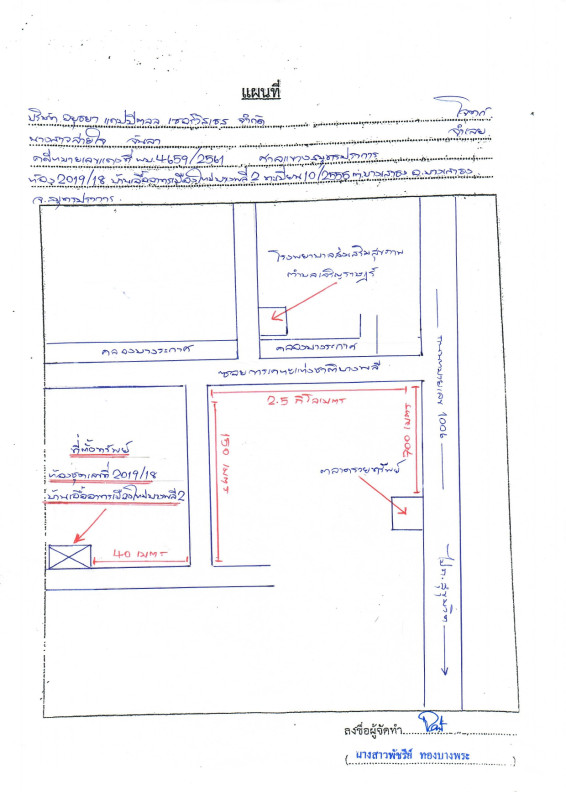 แผนที่
บริษัท อยุธยา แคปปิตอล เซอร์วิสเซส จำกัด โจทก์
นางสาวสายใจ จำเลย
คดีหมายเลขแดงที่ ผบ.4659/2561 ศาลแขวงสมุทรปราการ
ห้อง 2019/18 บ้านเอื้ออาทรเมืองใหม่บางพลี 2 ทะเบียน 10/2555 ต.บางเสาธง อ.บางเสาธง
จ.สมุทรปราการ
โรงพยาบาลส่งเสริมสุขภาพ
ตำบลเจริญราษฎร์
คลองบางระกาศ
คลองบางระกาศ
ซอยการเคหะแห่งชาติบางพลี
2.5 กิโลเมตร
150 เมตร
700 เมตร
1006
ที่ตั้งทรัพย์
ห้องชุดเลขที่ 2019/18
บ้านเอื้ออาทรเมืองใหม่บางพลี 2
ตลาดรวยทรัพย์
40 เมตร
ไป ถ.สุขุมวิท
ลงชื่อผู้จัดทำ
( นางสาวพัชรีย์ ทองบางพระ )